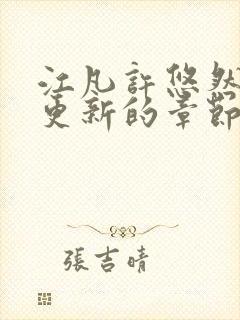 江凡許悠然
更新的章節
張吉晴